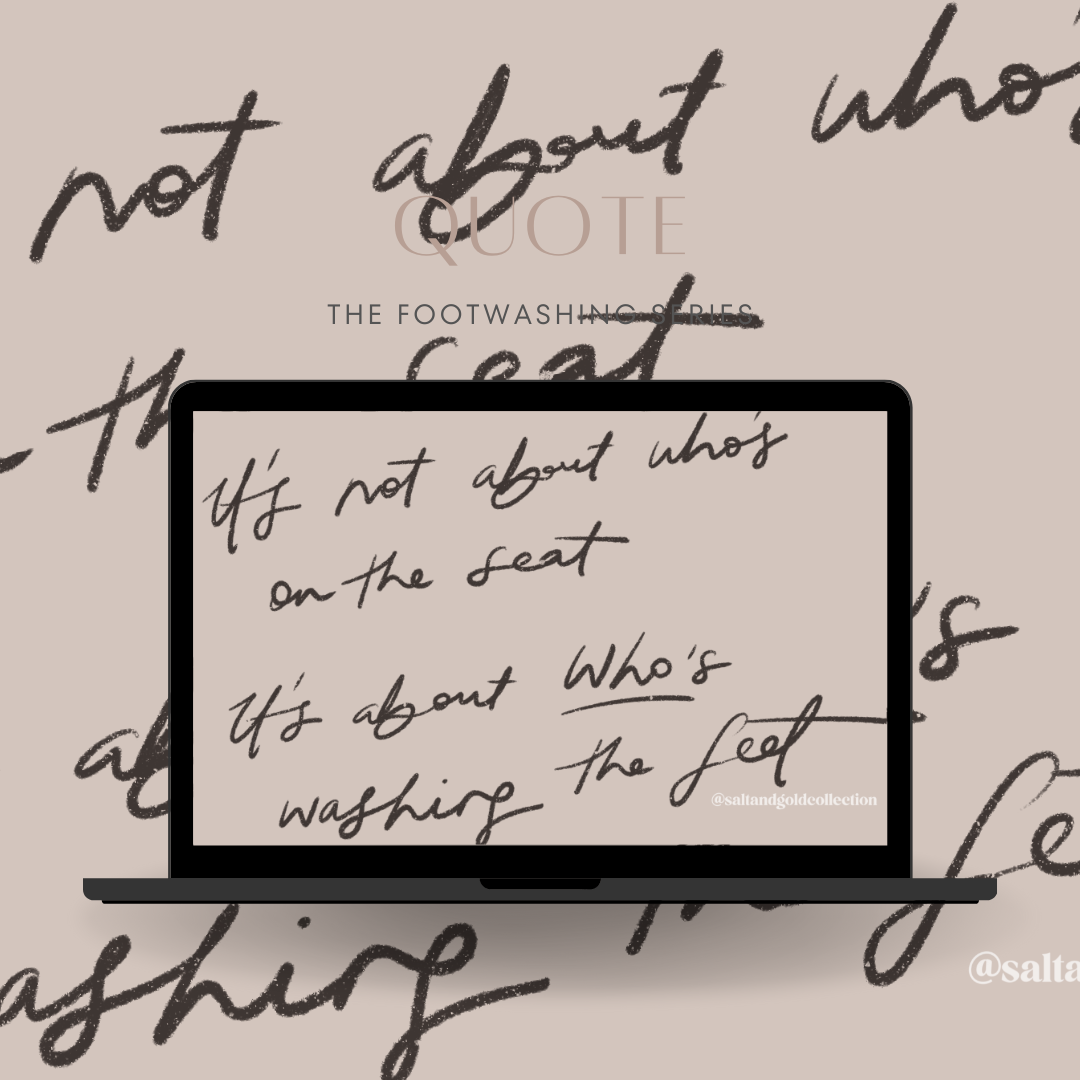 not about who's
QUOTE
THE FOOTWASHING SERIES
the seat
It's not about who's
on the seat
It's about Who's
washing the feet
@saltandgoldcollection
's
ab
ashing the fe
@salta